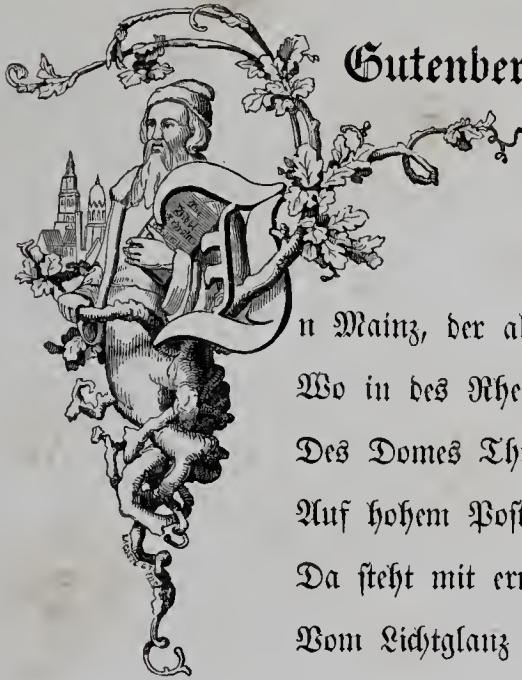 Gutenber
In Mainz, der al
Wo in des Rhe
Des Domes Th
Auf hohem Post
Da steht mit ern
Vom Lichtglanz